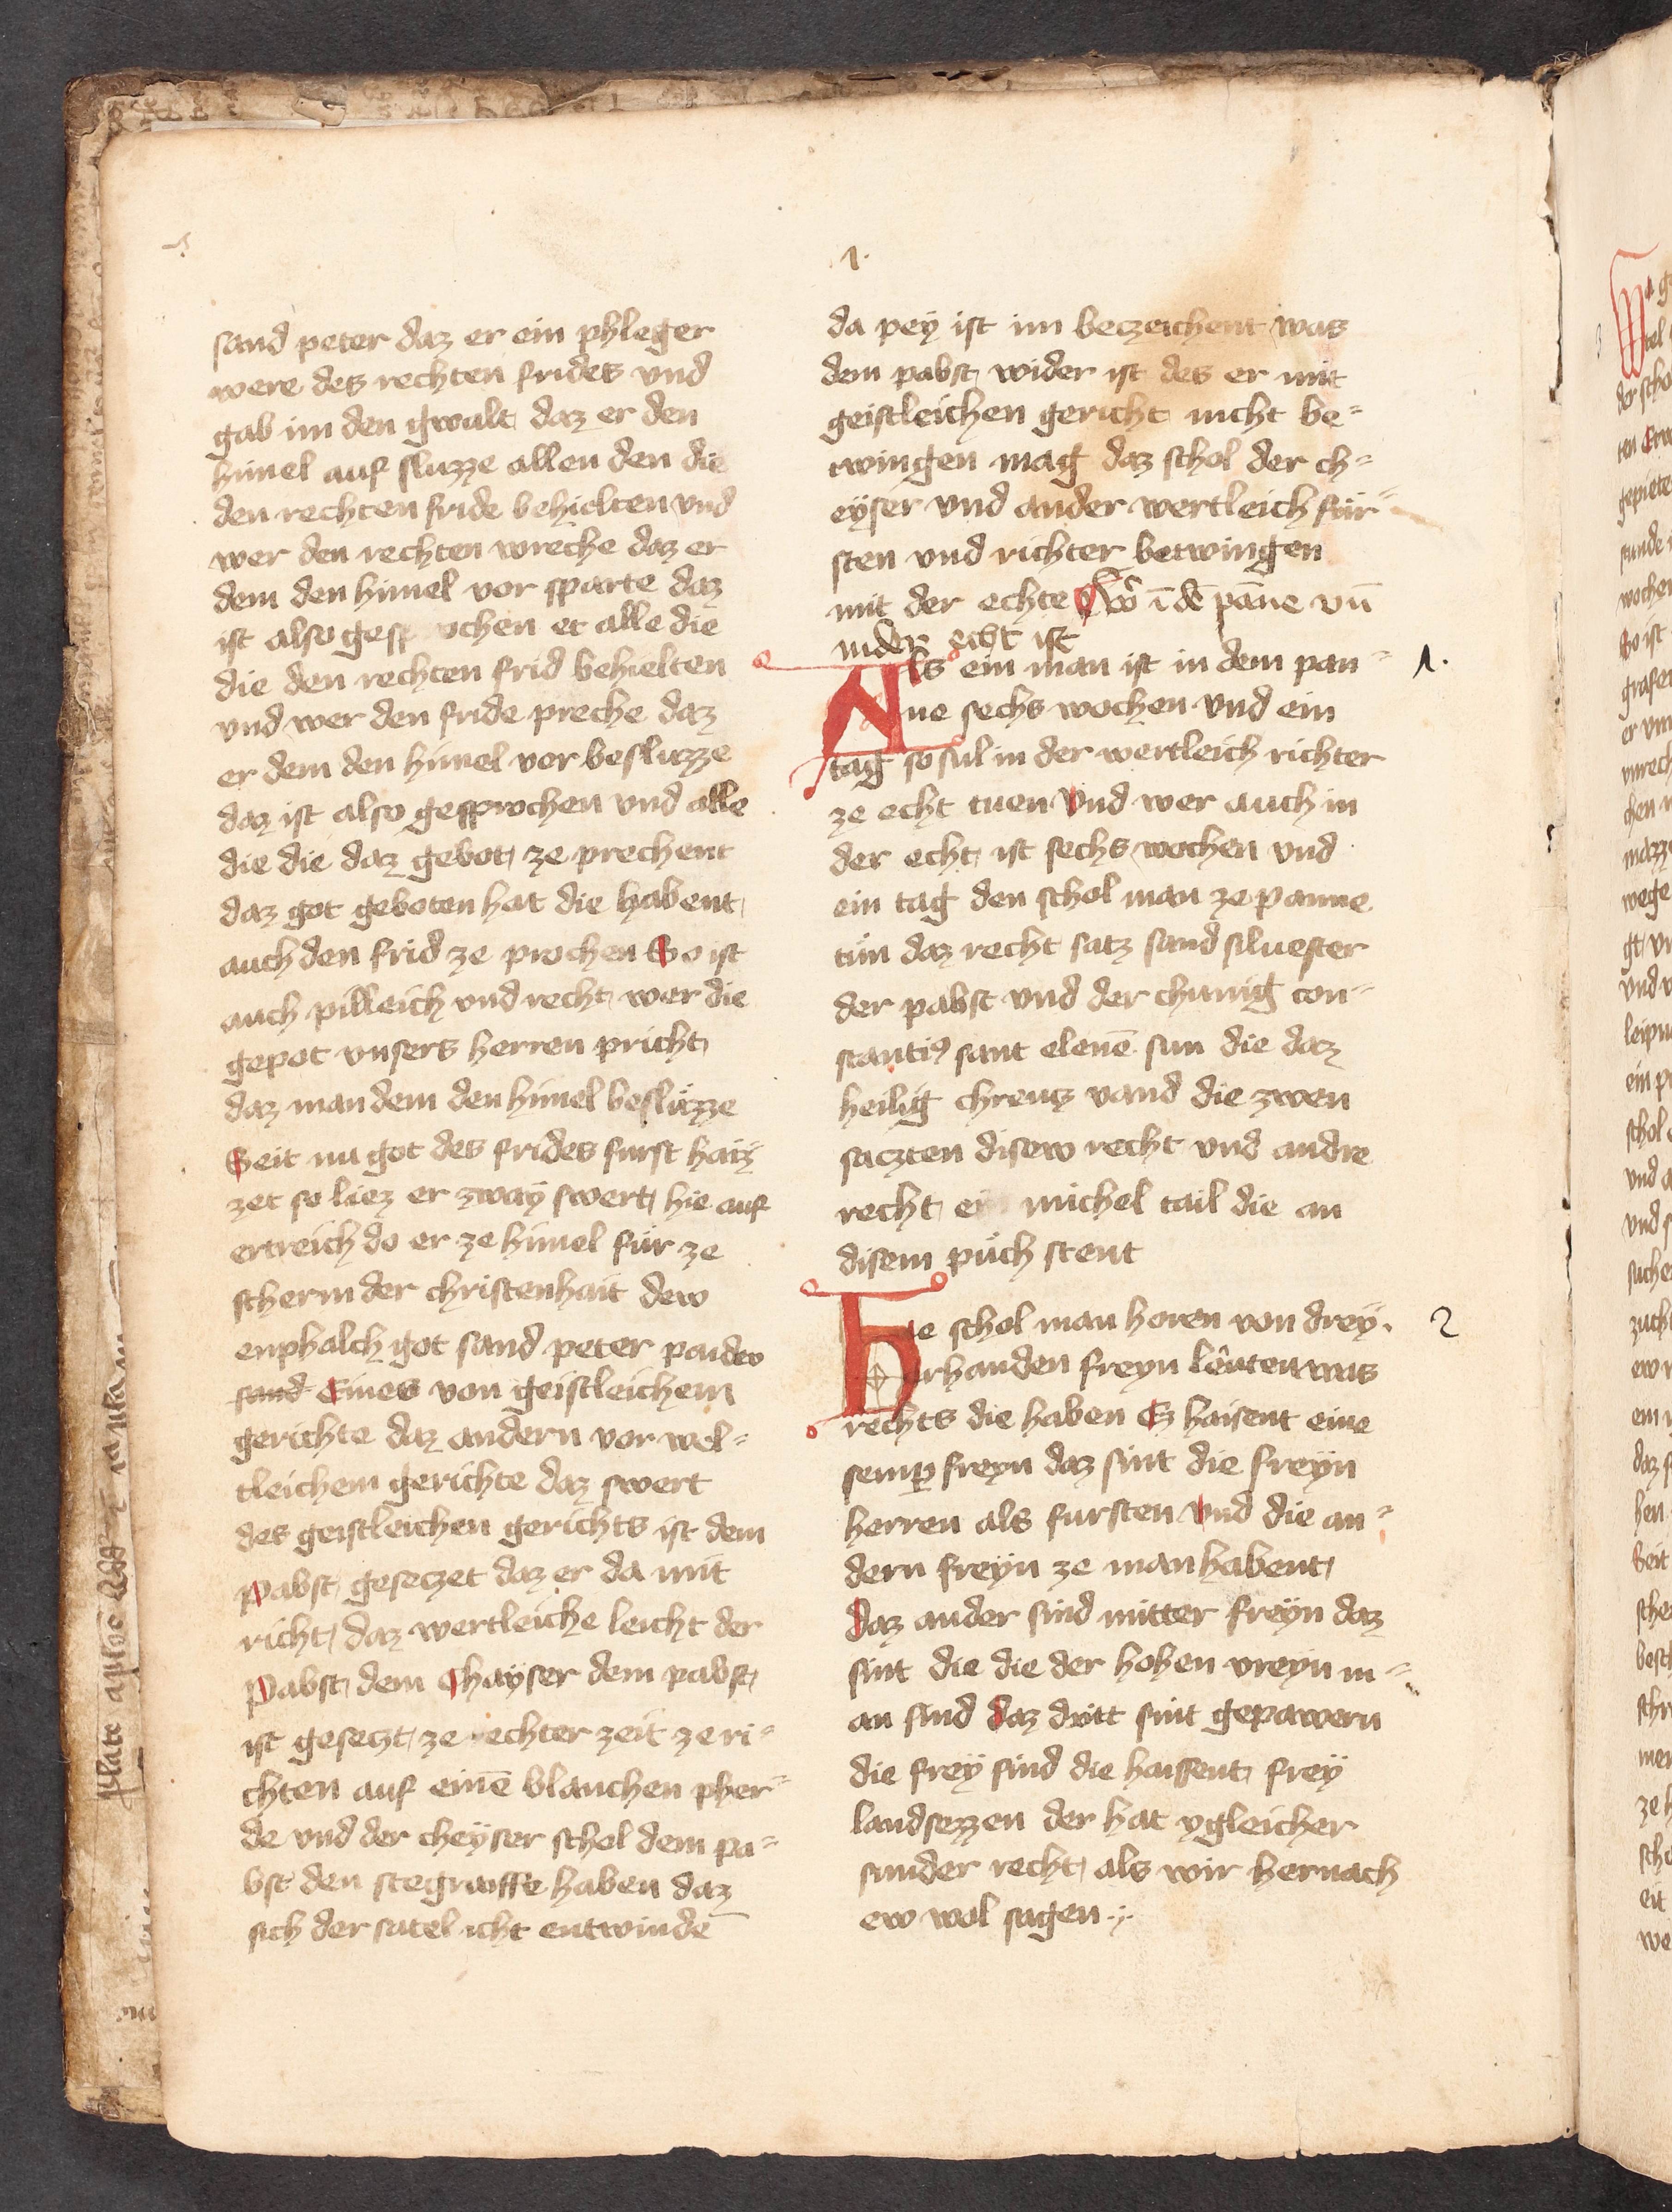 1.
sand peter daz er ein phleger
were des rechten frides vnd
gab im den gwalt daz er den
himel auf sluzze allen den die
den rechten fride behielten vnd
wer den rechten wreche daz er
dem den himel vor sparte daz
ist also gesprochen er alle die
die den rechten frid behielten
vnd wer den fride preche daz
er dem den himel vor besluzze
daz ist also gesprochen vnd alle
die die daz gebot ze prechent
daz got geboten hat die habent
auch den frid ze prochen So ist
auch pilleich vnd recht wer die
gepot vnsers herren pricht
daz man dem den himel besluzze
Seit nu got des frides furst haiz
zet so liez er zway swert hie auf
ertreich do er ze himel für ze
scherm der christenhait dew
enphalch got sand peter paidew
sand Eines von geistleichem
gerichte daz andern vor wel=
tleichem gerichte daz swert
des geistleichen gerichts ist dem
pabst gesetzet daz er da mit
richt daz wertleiche leicht der
Pabst dem Chayser dem pabst
ist gesetzt ze rechter zeit ze ri=
chten auf einē blanchen pher=
de vnd der cheyser schol dem pa=
bst den stegraiffe haben daz
sich der satel icht entwinde
da pey ist im bezeichent was
dem pabst wider ist des er mit
geistleichen gericht nicht be=
twingen mag daz schol der ch=
eyser vnd ander wertleich für=
sten vnd richter betwingen
mit der echte Sw ī dē pāne vn̄
in der echt ist
Als ein man ist in dem pan= 1.
ne sechs wochen vnd ein
tag so sul in der wertleich richter
ze echt tuen Vnd wer auch in
der echt ist sechs wochen vnd
ein tag den schol man ze panne
tün daz recht satz sand siluester
der pabst vnd der chunig con=
stantiꝰ sant elenē sun die daz
heilig chreutz vand die zwen
saczten disew recht vnd andre
recht ein michel tail die an
disem püch stent
Hie schol man horen von drey. 2
erhanden freyn lêuten was
rechts die haben Ez haisent eine
semꝑ freyn daz sint die freyn
herren als fursten Vnd die an=
dern freyn ze man habent
Daz ander sind mitter freyn daz
sint die die der hohen vreyn m=
an sind Daz dritt sint gepawern
die frey sind die haissent frey
landsezzen der hat ygleicher
sunder recht als wir hernach
ew wol sagen